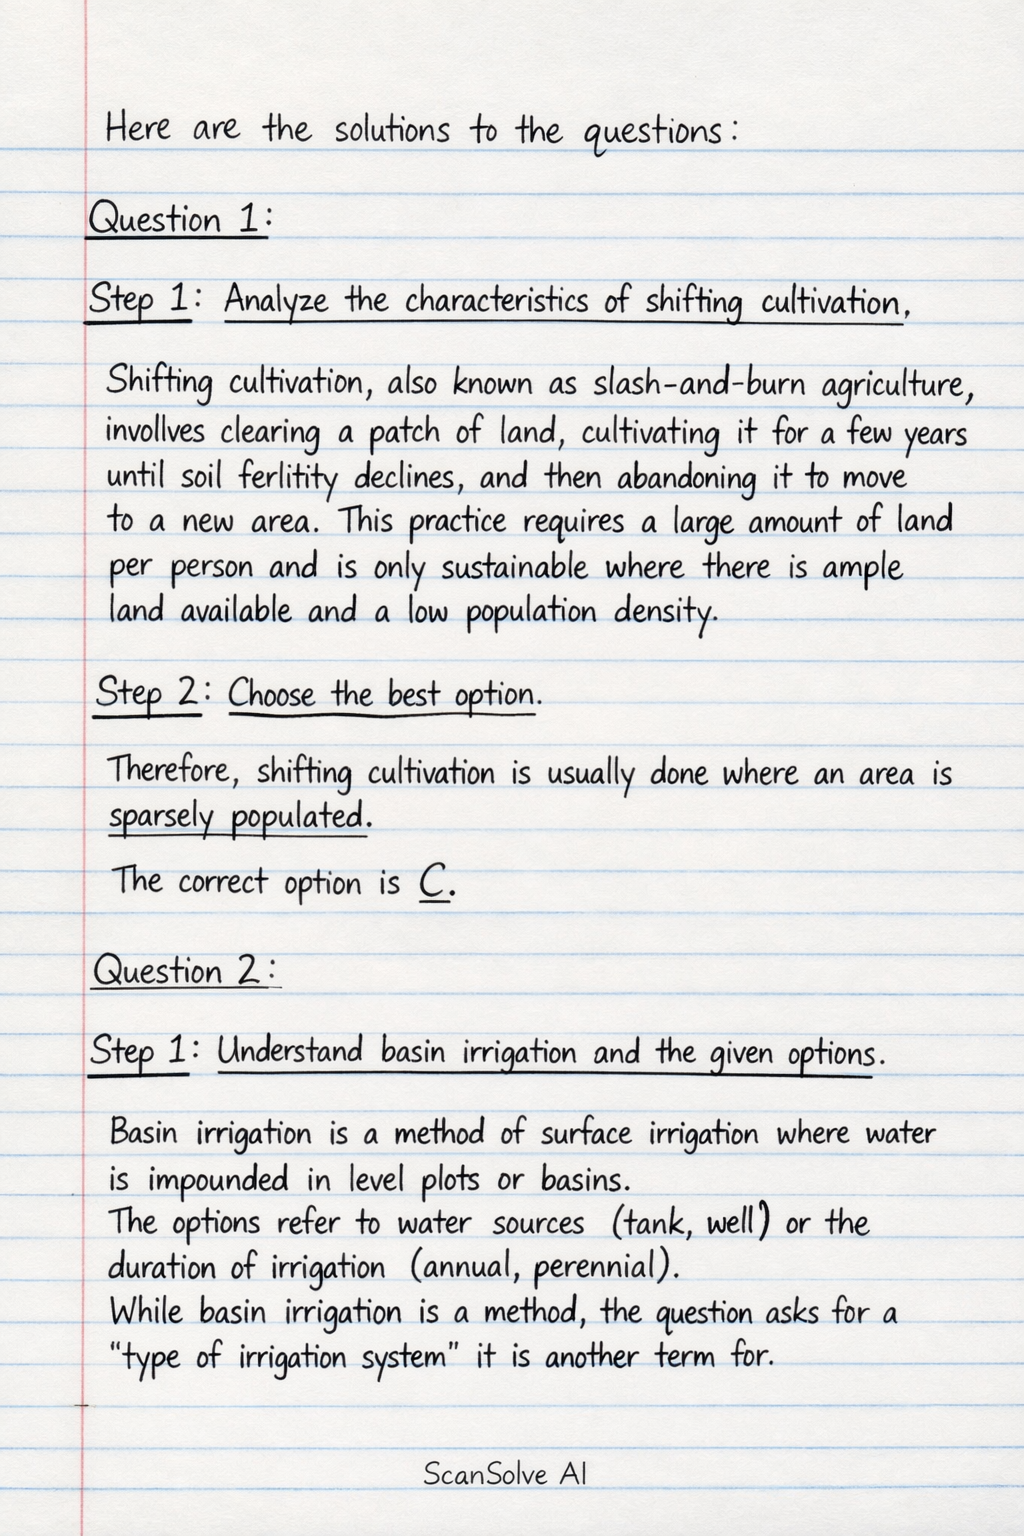 Here are the solutions to the questions:
Question 1:
Step 1: Analyze the characteristics of shifting cultivation,
Shifting cultivation, also known as slash-and-burn agriculture,
invollves clearing a patch of land, cultivating it for a few years
until soil ferlitity declines, and then abandoning it to move
to a new area. This practice requires a large amount of land
per person and is only sustainable where there is ample
land available and a low population density.
Step 2: Choose the best option.
Therefore, shifting cultivation is usually done where an area is
sparsely populated.
The correct option is C.
Question 2:
Step 1: Understand basin irrigation and the given options.
Basin irrigation is a method of surface irrigation where water
is impounded in level plots or basins.
The options refer to water sources (tank, well) or the
duration of irrigation (annual, perennial).
While basin irrigation is a method, the question asks for a
"type of irrigation system" it is another term for.
ScanSolve AI